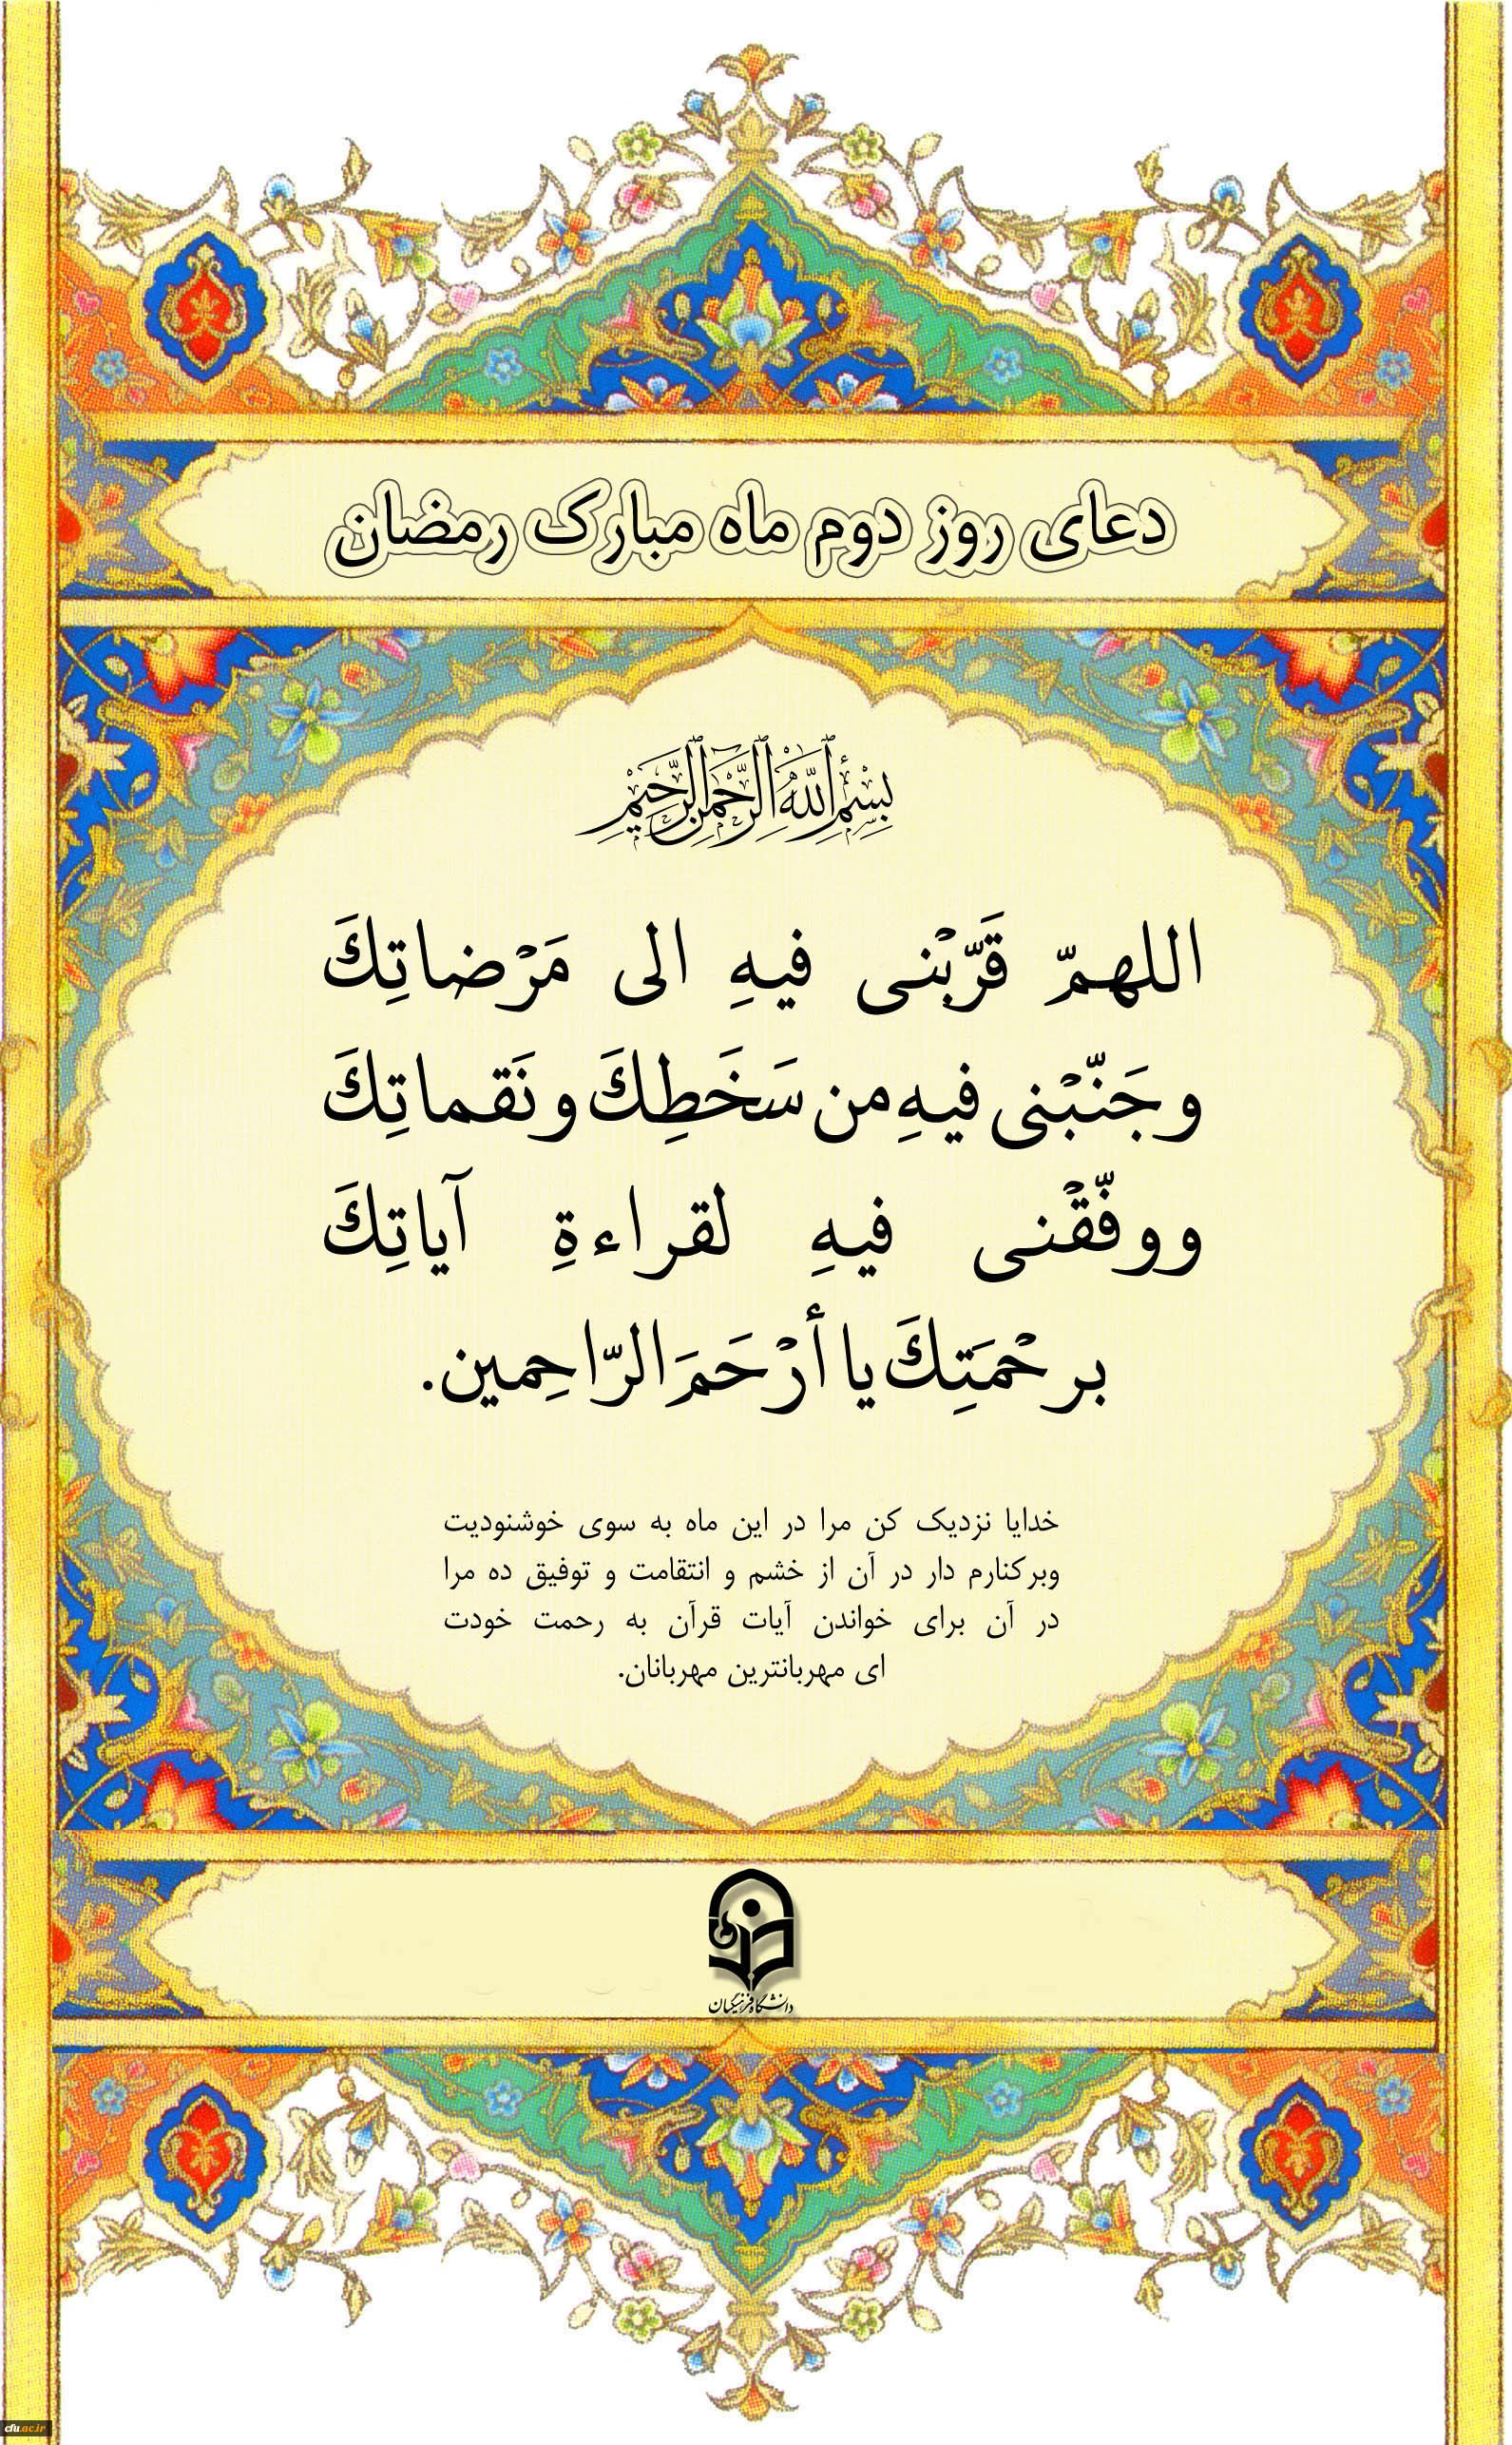 دعای روز دوم ماه مبارک رمضان
بِسْمِ ٱللَّٰهِ ٱلرَّحْمَٰنِ ٱلرَّحِيمِ
اللهمّ قَرّبْنی فیهِ الی مَرْضاتِكَ
و جَنّبْنی فیهِ من سَخَطِكَ و نَقماتِكَ
و وفّقْنی فیهِ لقراءةِ آیاتِكَ
برحْمَتِكَ یا أرْحَمَ الرّاحِمین.
خدایا نزدیک کن مرا در این ماه به سوی خوشنودیت
وبرکنارم دار در آن از خشم و انتقامت و توفیق ده مرا
در آن برای خواندن آیات قرآن به رحمت خودت
ای مهربانترین مهربانان.
دانشگاه فرهنگیان
cfu.ac.ir